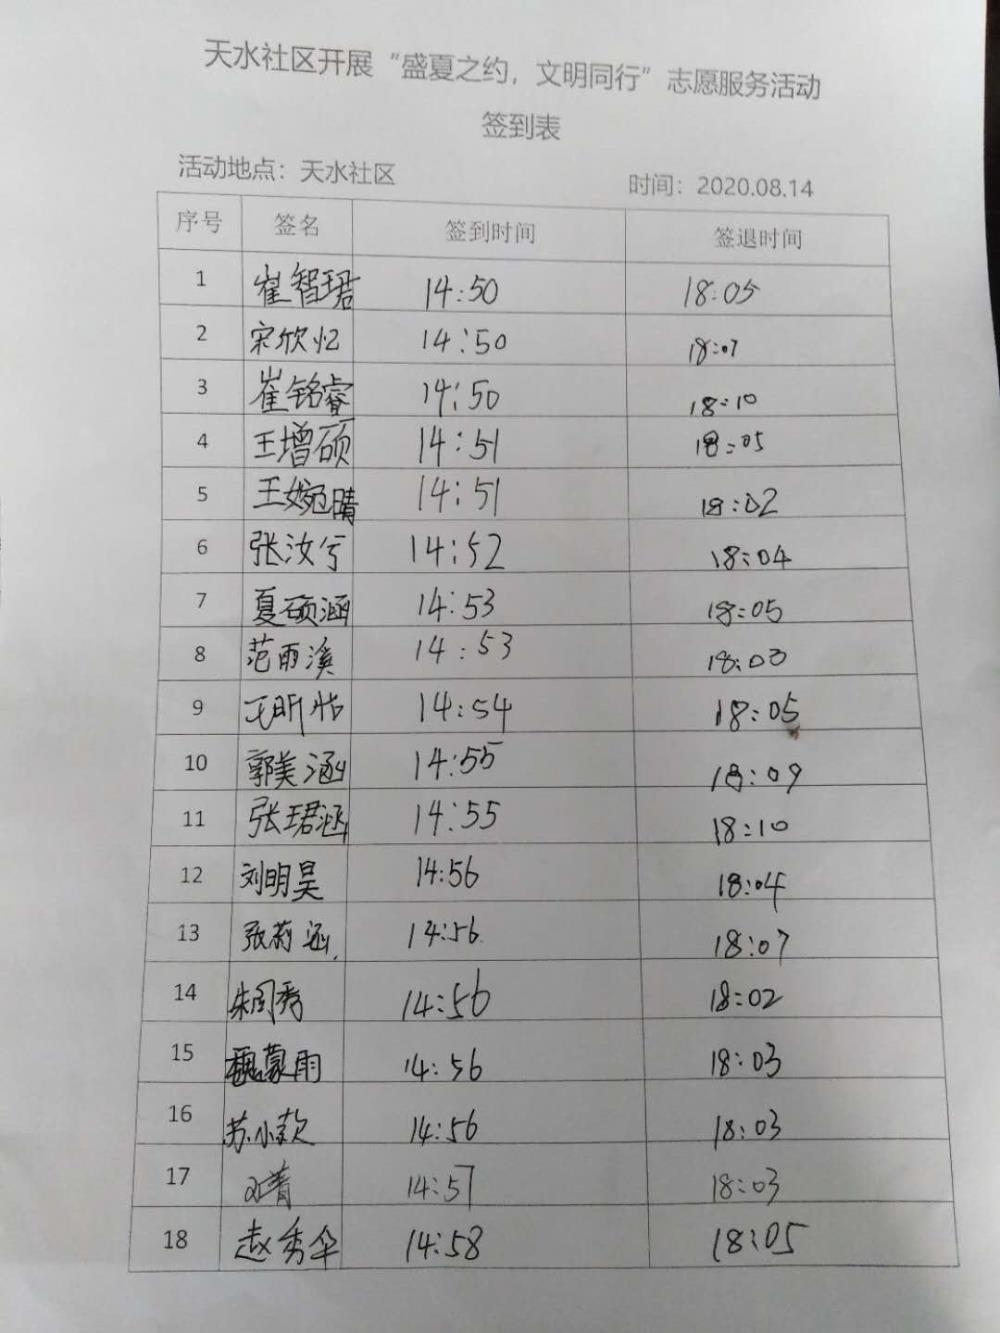 天水社区开展“盛夏之约，文明同行”志愿服务活动
签到表
活动地点：天水社区 时间：2020.08.14
序号 签名 签到时间 签退时间
1 崔智珺 14:50 18:05
2 宋欣忆 14:50 18:07
3 崔铭睿 14:50 18:10
4 王增硕 14:51 18:05
5 王婉晴 14:51 18:02
6 张汝兮 14:52 18:04
7 夏硕涵 14:53 18:05
8 范雨溪 14:53 18:03
9 王昕怡 14:54 18:05
10 郭美涵 14:55 18:09
11 张珺涵 14:55 18:10
12 刘明昊 14:56 18:04
13 张莉涵 14:56 18:07
14 朱闰秀 14:56 18:02
15 魏蒙雨 14:56 18:03
16 苏小款 14:56 18:03
17 14:57 18:03
18 赵秀伞 14:58 18:05